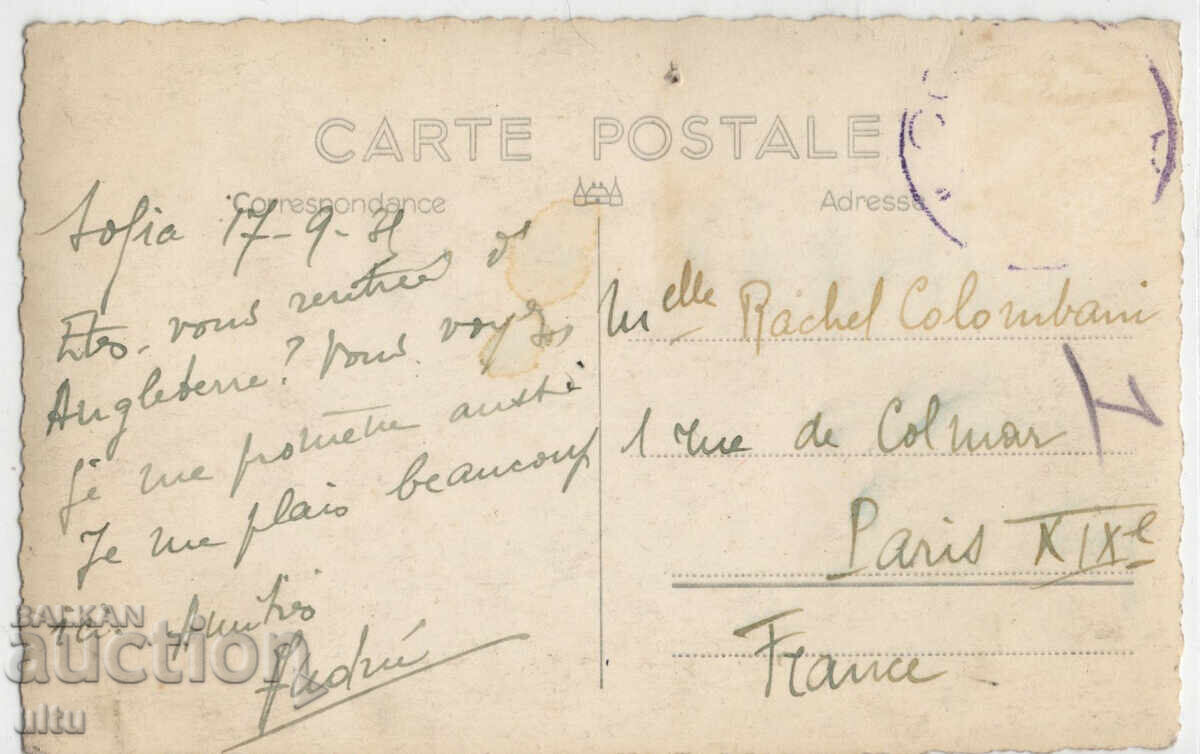 CARTE POSTALE
Correspondance
Adresse
Sofia 17-9-
Etes-vous rentrée d'
Angleterre? Vous voyez
je me promène aussi
Je me plais beaucoup
ici. Amitiés
André
Melle Rachel Colombani
1 rue de Colmar
Paris XIXe
France
T
BALKAN
auction
nltu